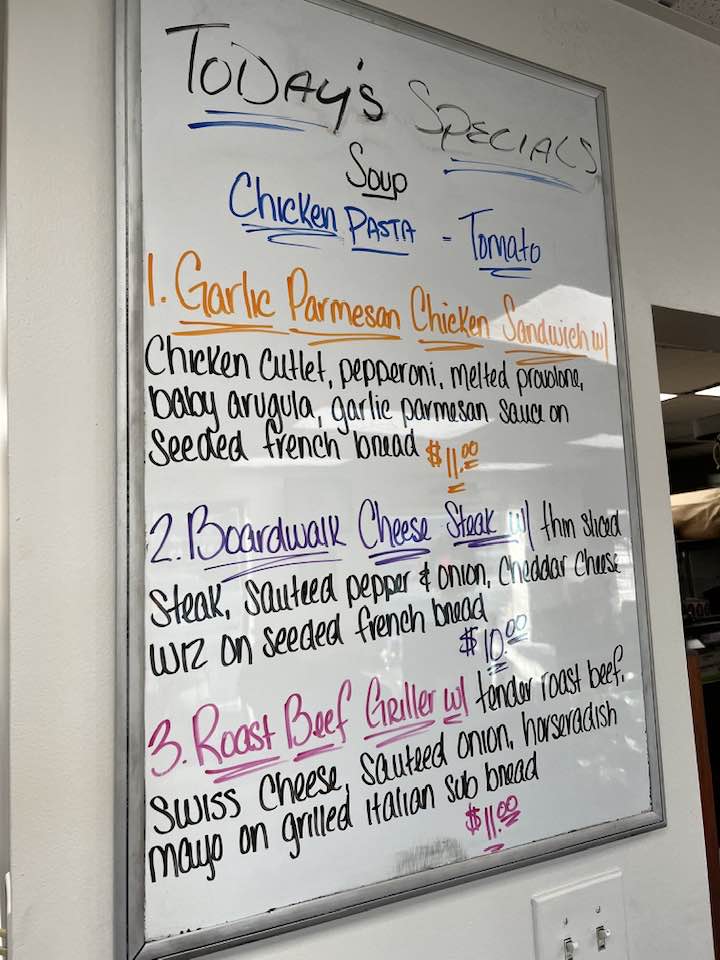 TODAY'S SPECIALS
Soup
Chicken PASTA - Tomato
1. Garlic Parmesan Chicken Sandwich w/
Chicken Cutlet, pepperoni, melted provolone,
baby arugula, garlic parmesan sauce on
Seeded french bread $11.00
2. Boardwalk Cheese Steak w/ thin sliced
Steak, Sauteed pepper & onion, Cheddar Cheese
WIZ on Seeded french bread
$10.00
3. Roast Beef Griller w/ tender roast beef,
Swiss Cheese, Sauteed onion, horseradish
mayo on grilled Italian sub bread
$11.00